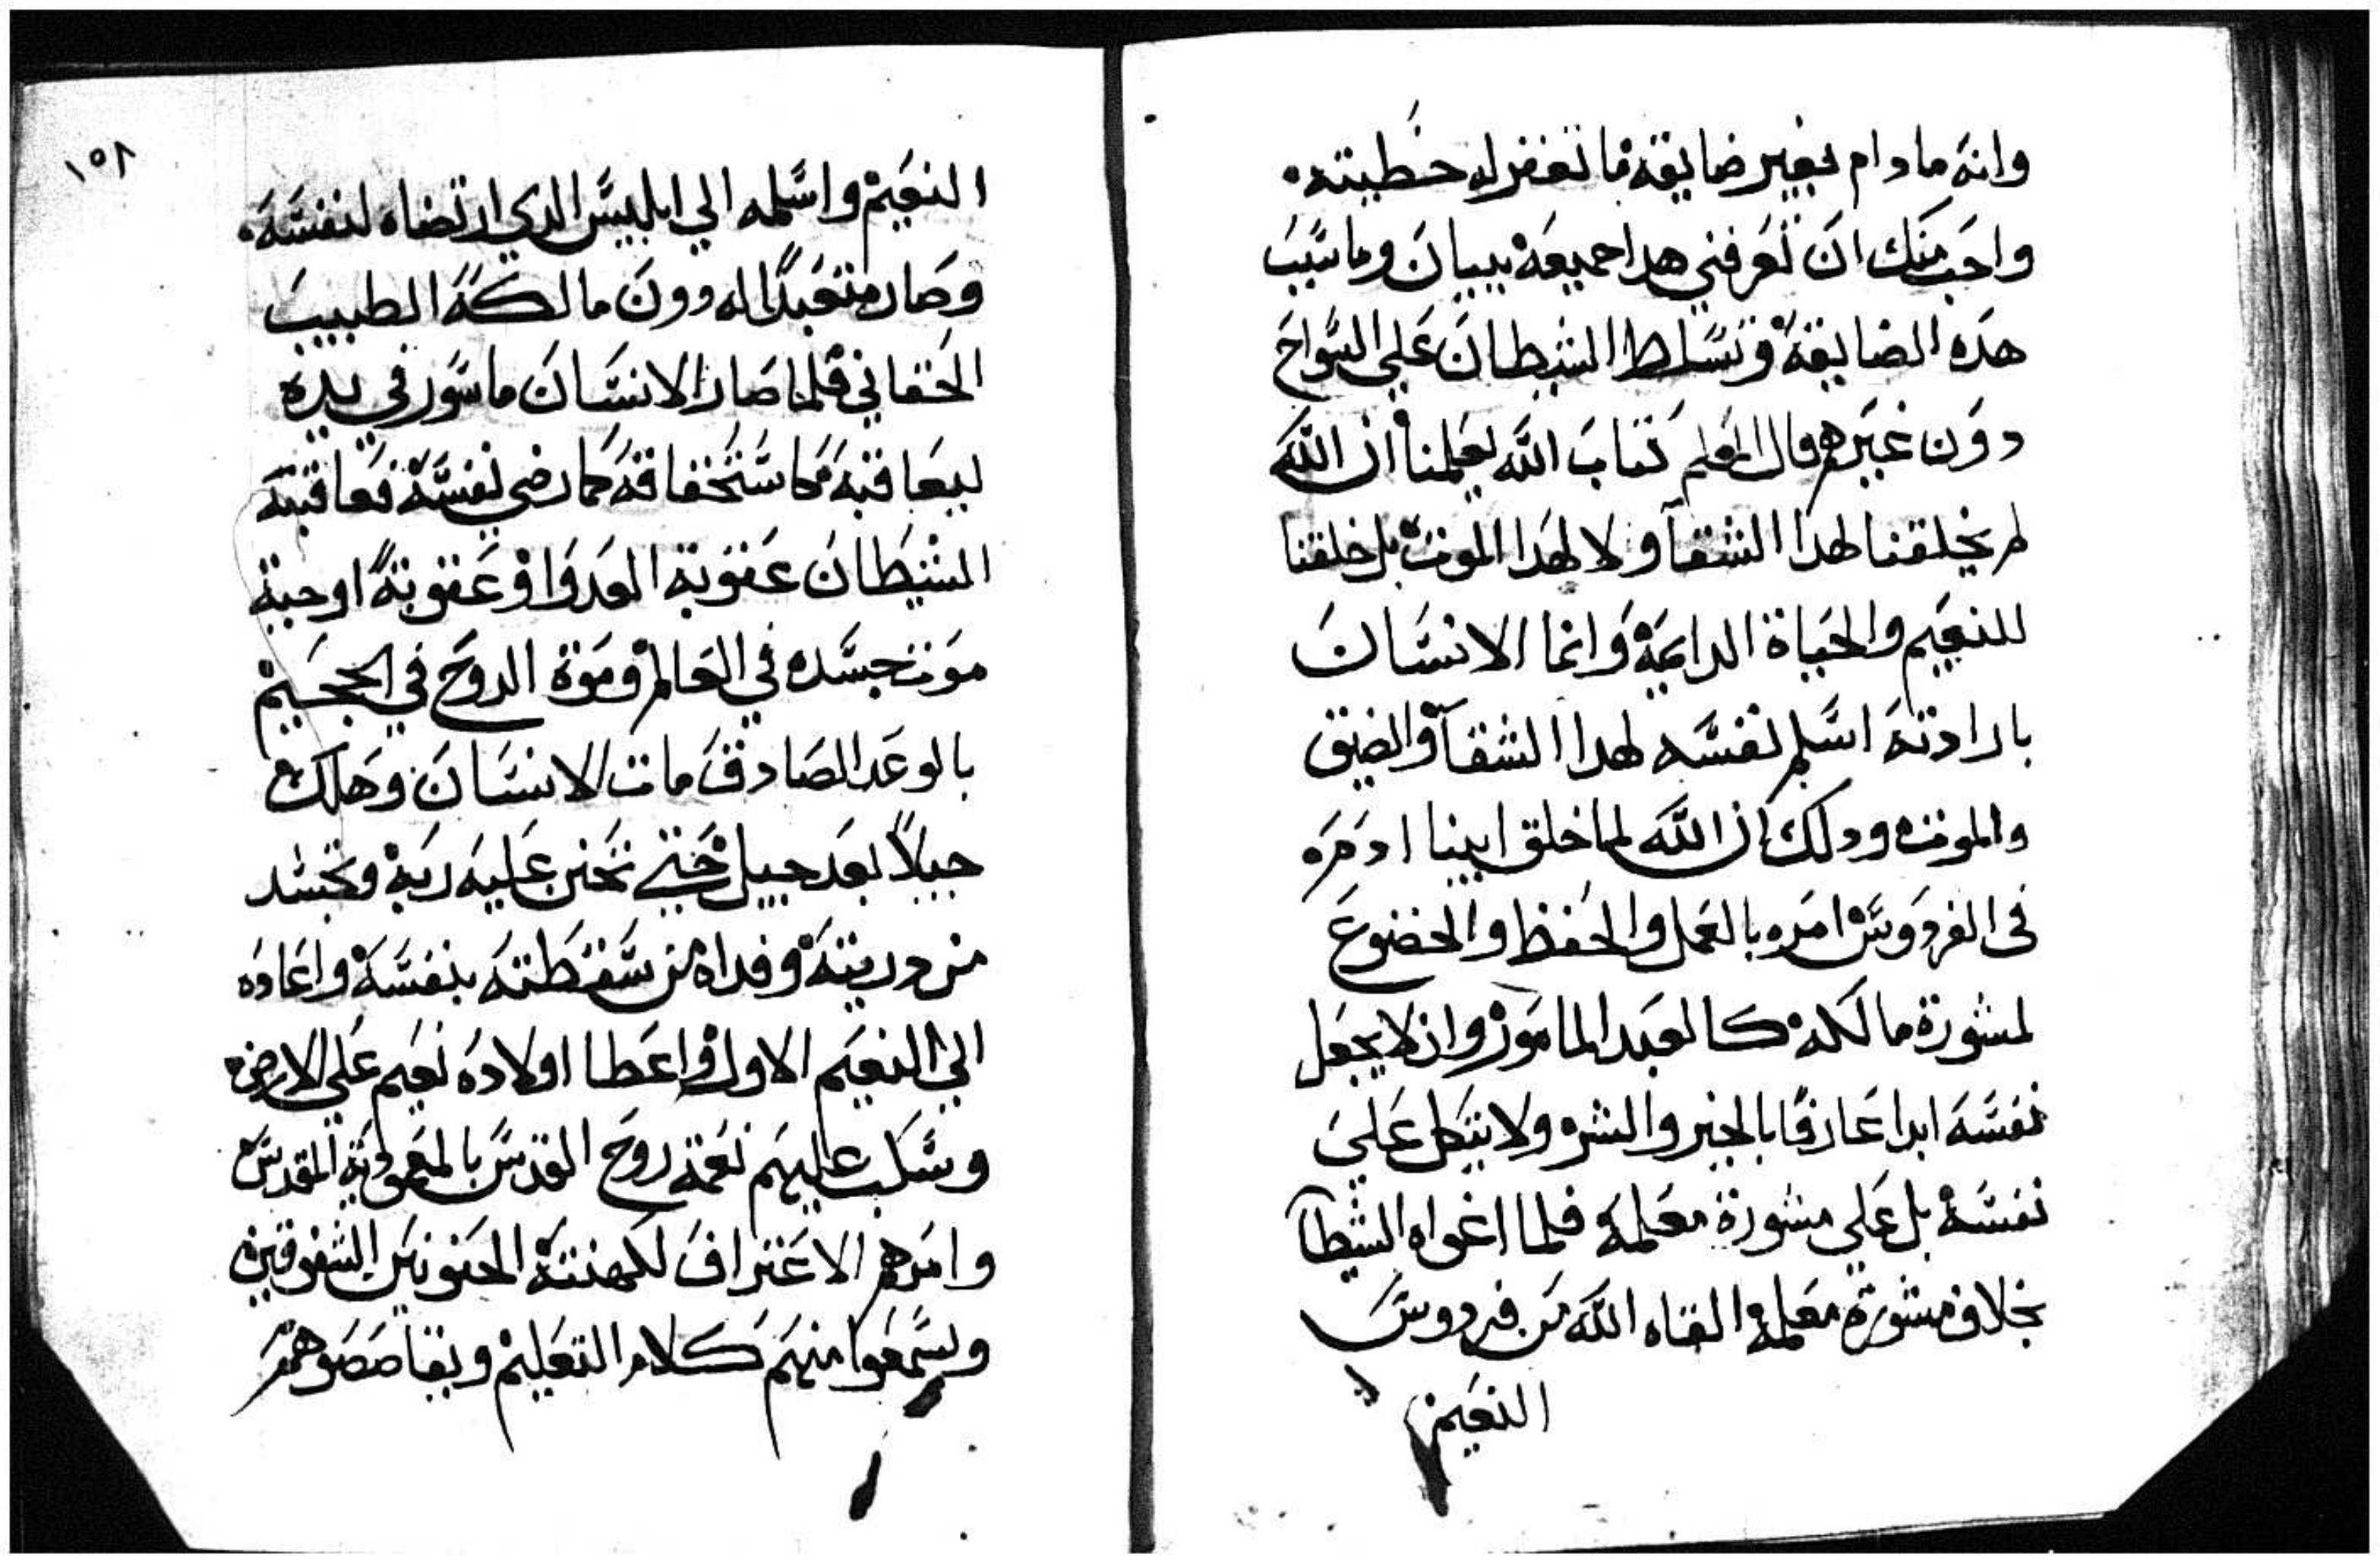 وانه مادام بغير ضايقه ما تغفر له خطيته
واحب منك ان تعرفني هدا جميعه ببيان وما سبب
هده الضايقة وتسلط الشيطان علي السواح
دون غيرهم قال المعلم كتاب الله يعلمنا ان الله
لم يخلقنا لهدا الشقا ولا لهدا الموت بل خلقنا
للنعيم والحياة الدايمة وانما الانسان
بارادته اسلم نفسه لهدا الشقا والضيق
والموت ودلك ان الله لما خلق ابينا ادم
في الفردوس امره بالعمل والحفظ والخضوع
لمشورة مالكه كالعبد المامور وان لا يجعل
نفسه ابدا عارفا بالخير والشر ولا يتكل علي
نفسه بل علي مشورة معلمه فلما اغواه الشيطا
بخلاف مشورة معلمه القاه الله من فردوس
النعيم
١٥٨
النعيم واسلمه الي ابليس الدي ارتضاه لنفسه
وصار متعبدا له دون مالكه الطبيب
الحقاني فلما صار الانسان ماسور في يده
ليعاقبه كاستحقاقه كما رضي لنفسه فعاقبته
الشيطان عقوبة العدوا وعقوبته اوجبة
موت جسده في العالم وموة الروح في الجحيم
بالوعد الصادق مات الانسان وهلك
جيلا بعد جيل حتي تحنن عليه ربه وتجسد
من دريته وفداه من سقطته بنفسه واعاده
الي النعيم الاول واعطا اولاده نعيم علي الارض
وسكب عليهم نعمة روح القدس بالمعمودية المقدسه
وامرهم الاعتراف لكهنته الحنونين الشفوقين
ويسمعوا منهم كلام التعليم ويقاصصوهم